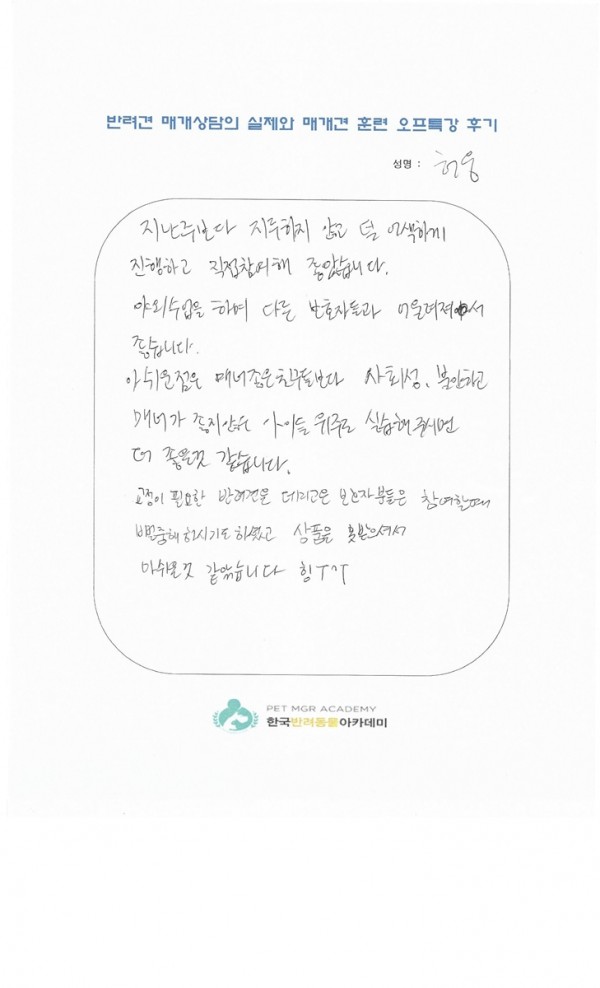 반려견 매개상담의 실제와 매개견 훈련 오프특강 후기
성명 : 허웅
지난주보다 지루하지 않고 덜 어색하게
진행하고 직접참여해 좋았습니다.
야외수업을 하며 다른 보호자들과 어울려져서
좋습니다.
아쉬운점은 매너좋은친구들보다 사회성, 불안하고
매너가 좋지않은 아이들 위주로 실습해주시면
더 좋을것 같습니다.
교정이 필요한 반려견을 데리고온 보호자분들은 참여할때
해 하시기도 하였고 상품을 못받으셔서
아쉬운것 같았습니다 힝ㅜㅜ
PET MGR ACADEMY
한국반려동물아카데미